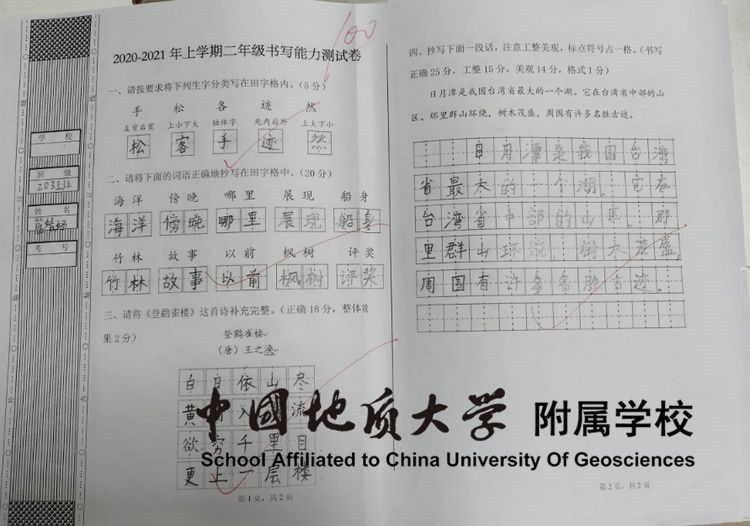 100
2020-2021年上学期二年级书写能力测试卷
学校
班级
姓名
考号
一、请按要求将下列生字分类写在田字格内。(5分)
手 松 各 迹 然
左窄右宽 上小下大 独体字 先内后外 上大下小
松 客 手 迹 然
二、请将下面的词语正确地抄写在田字格中。(20分)
海洋 傍晚 哪里 展现 船身
海洋 傍晚 哪里 展现 船身
竹林 故事 以前 枫树 评奖
竹林 故事 以前 枫树 评奖
三、请将《登鹳雀楼》这首诗补充完整。(正确18分,整体效
果2分)
登鹳雀楼
(唐)王之涣
白日依山尽
黄 入 流
欲穷千里目
更上一层楼
第1页,共2页
四、抄写下面一段话,注意工整美观,标点符号占一格。(书写
正确25分,工整15分,美观14分,格式1分)
日月潭是我国台湾省最大的一个湖。它在台湾省中部的山
区。那里群山环绕,树木茂盛,周围有许多名胜古迹。
日月潭是我国台湾
省最大的一个湖。它在
台湾省中部的山区。那
里群山环绕,树木茂盛,
周围有许多名胜古迹。
第2页,共2页
中國地质大学 附属学校
School Affiliated to China University Of Geosciences